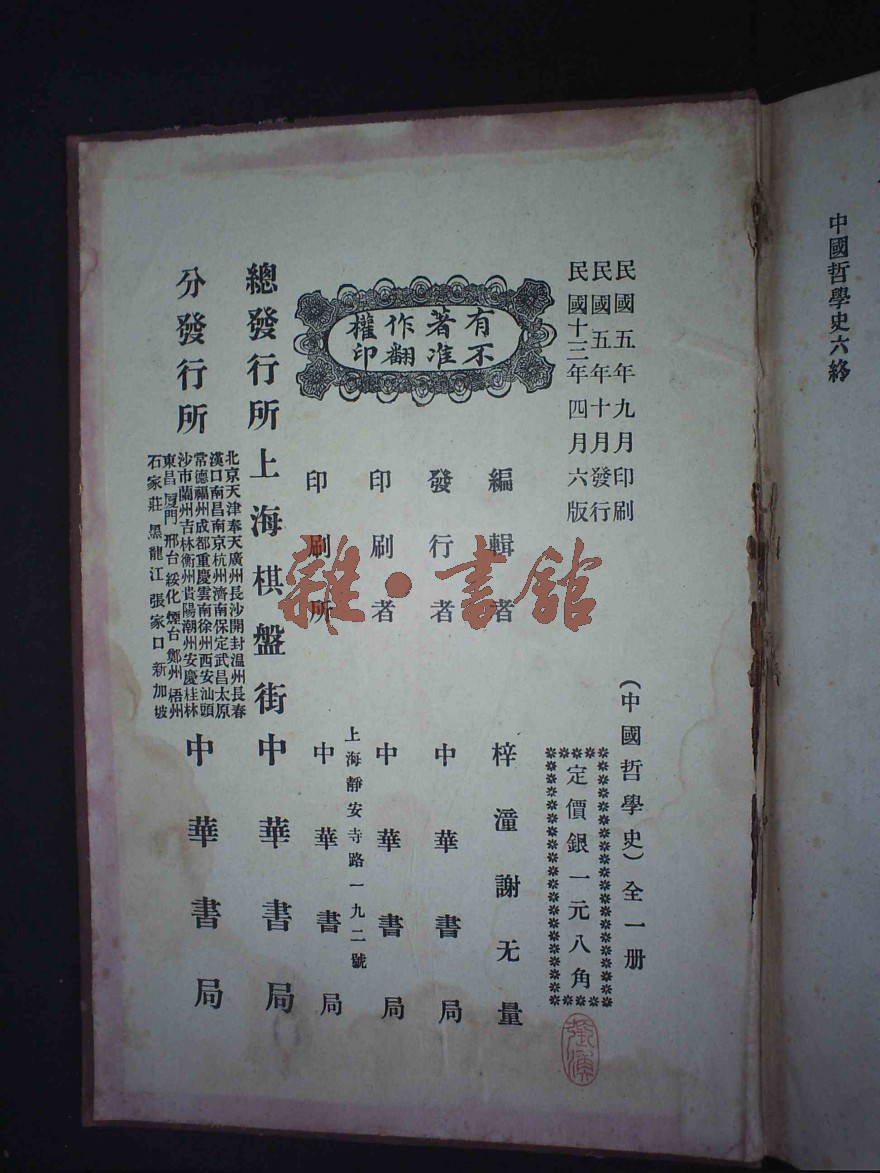 中國哲學史六終
民國五年九月印刷
民國五年十月發行
民國十三年四月六版
（中國哲學史）全一册
定價銀一元八角
有著作權
不准翻印
編輯者 梓潼謝无量
發行者 中華書局
印刷者 中華書局
印刷所 上海靜安寺路一九二號 中華書局
總發行所 上海棋盤街 中華書局
分發行所
北京天津奉天廣州長沙開封温州長春
漢口南昌南京杭州濟南保定武昌太原
常德福州成都重慶雲南徐州西安汕頭
沙市蘭州吉林衡州貴陽潮州安慶桂林
東昌厦門邢台綏化煙台鄭州梧州
石家莊黑龍江張家口新加坡
中華書局
雜·書館